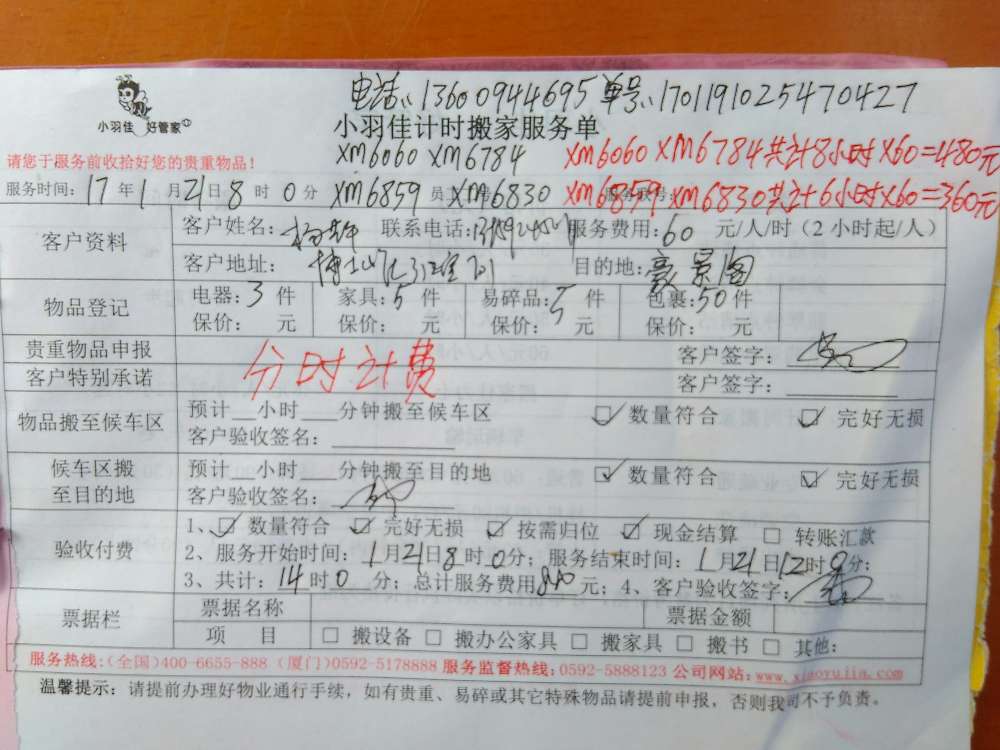 电话:13600944695 单号:1701191025470427
小羽佳 好管家
小羽佳计时搬家服务单
XM6060 XM6784 XM6060 XM6784共计8小时X60=480元
请您于服务前收拾好您的贵重物品!
服务时间:17年1月21日8时0分 XM6859 员 XM6830 XM6859 XM6830共计6小时X60=360元
客户资料 客户姓名: 联系电话: 服务费用:60 元/人/时(2小时起/人)
客户地址: 目的地:豪景阁
物品登记 电器:3件 家具:5件 易碎品:5件 包裹:50件
保价: 元 保价: 元 保价: 元 保价: 元
贵重物品申报 客户签字:
客户特别承诺 分时计费 客户签字:
物品搬至候车区 预计 小时 分钟搬至候车区 ☑ 数量符合 ☑ 完好无损
客户验收签名:
候车区搬至目的地 预计 小时 分钟搬至目的地 ☑ 数量符合 ☑ 完好无损
客户验收签名:
验收付费 1、☑ 数量符合 ☑ 完好无损 ☑ 按需归位 ☑ 现金结算 □ 转账汇款
2、服务开始时间:1月21日8时0分;服务结束时间:1月21日12时0分;
3、共计:14时0分;总计服务费用840元;4、客户验收签字:
票据栏 票据名称 票据金额
项 目 □ 搬设备 □ 搬办公家具 □ 搬家具 □ 搬书 □ 其他:
服务热线:(全国)400-6655-888 (厦门)0592-5178888 服务监督热线:0592-5888123 公司网站:www.xiaoyujia.com
温馨提示:请提前办理好物业通行手续,如有贵重、易碎或其它特殊物品请提前申报,否则我司不予负责。